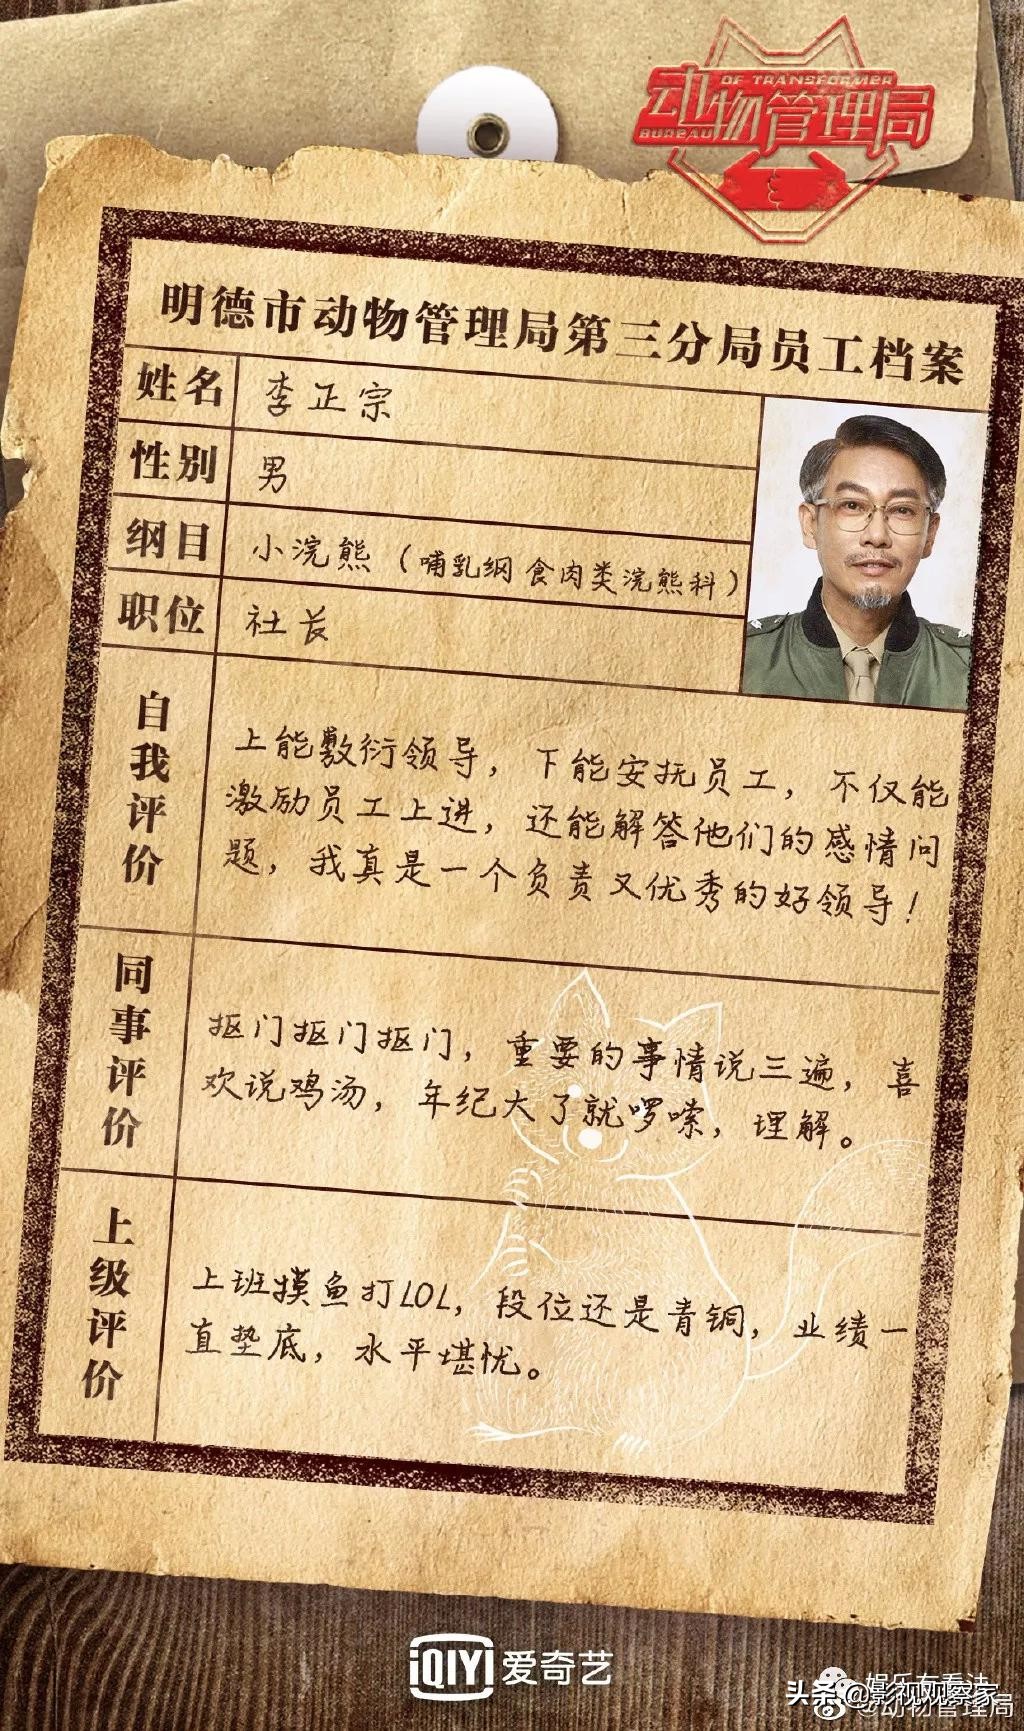 OF TRANSFORMER
动物管理局
BUREAU
明德市动物管理局第三分局员工档案
姓名 李正宗
性别 男
纲目 小浣熊（哺乳纲 食肉类浣熊科）
职位 社长
自我评价
上能敷衍领导，下能安抚员工，不仅能
激励员工上进，还能解答他们的感情问
题，我真是一个负责又优秀的好领导！
同事评价
抠门抠门抠门，重要的事情说三遍，喜
欢说鸡汤，年纪大了就啰嗦，理解。
上级评价
上班摸鱼打LOL，段位还是青铜，业绩一
直垫底，水平堪忧。
iQIYI 爱奇艺
娱乐在看法
头条@影视观察家
@动物管理局